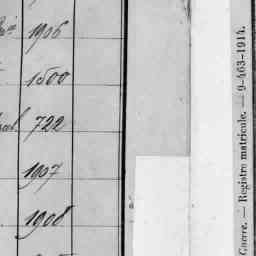 1906
1500
722
1907
1908
Guerre. — Registre matricule. — 9-463-1914.